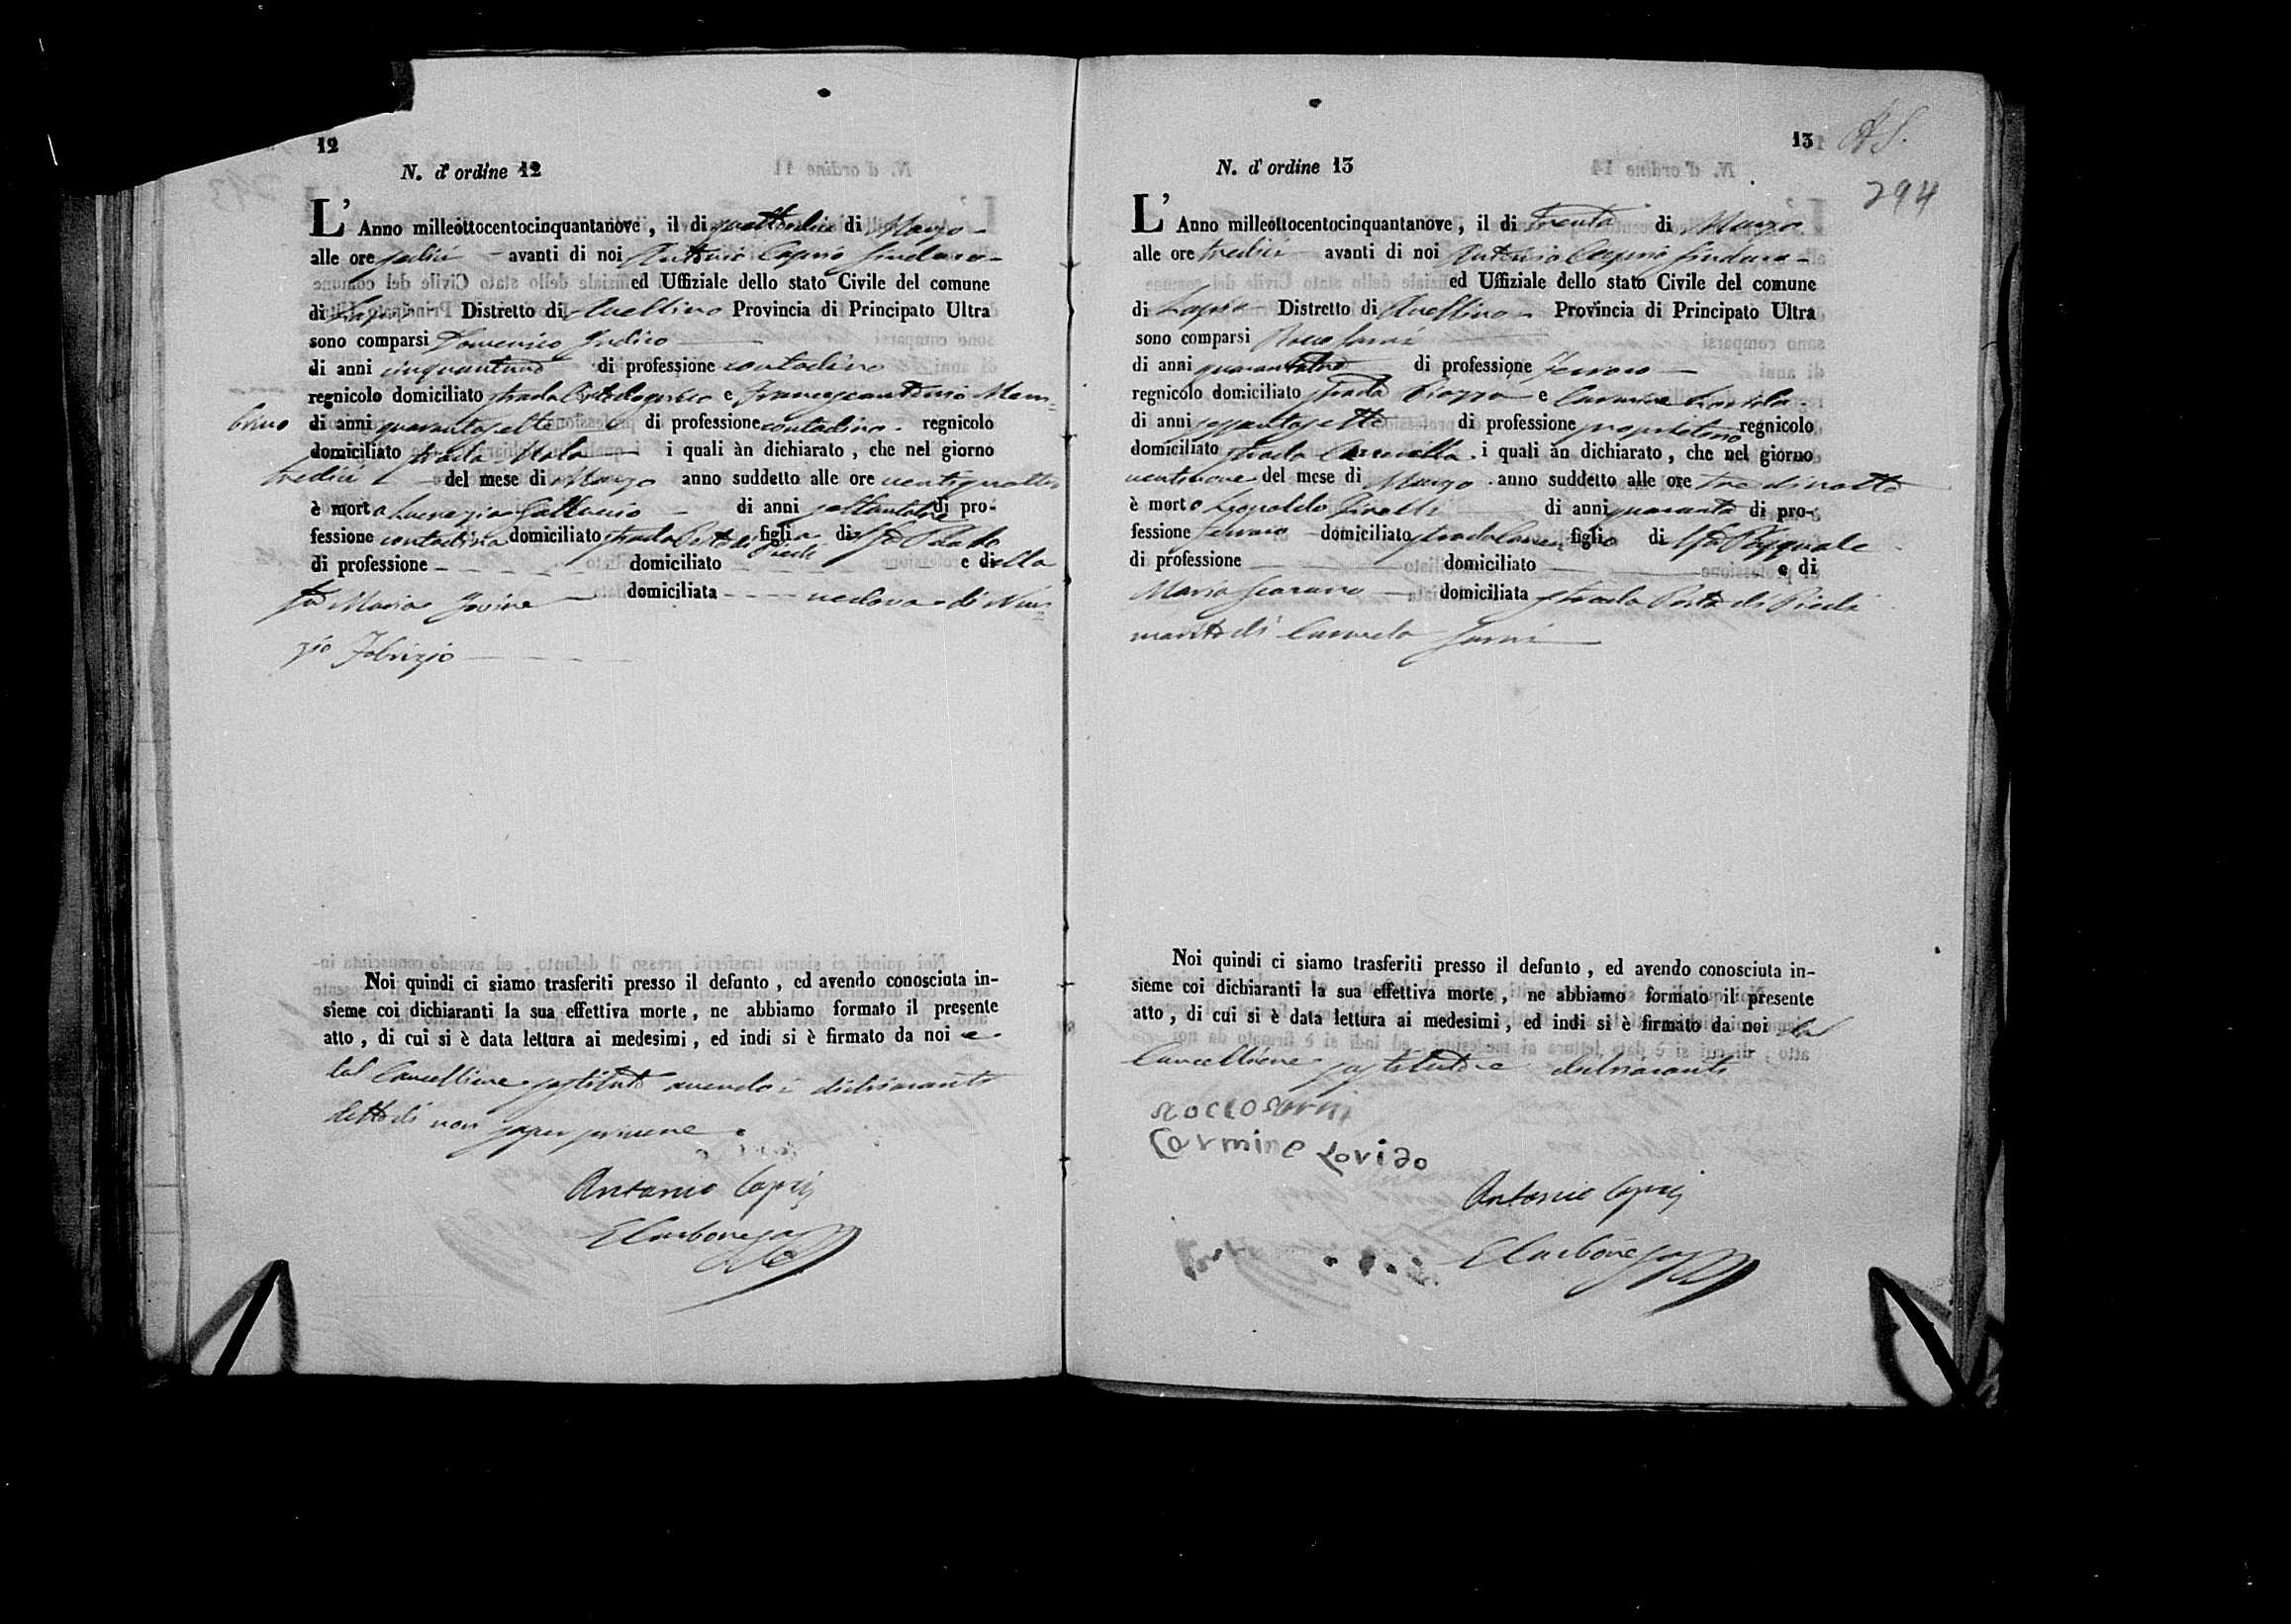 12
N. d' ordine 12
L' Anno milleottocentocinquantanove, il di quattordici di Marzo
alle ore sedici avanti di noi Antonio Caprio Sindaco
ed Uffiziale dello stato Civile del comune
di Lapio Distretto di Avellino Provincia di Principato Ultra
sono comparsi Domenico
di anni di professione contadino
regnicolo domiciliato strada e Francescantonio Mem=
brino di anni quarantasette di professione contadino regnicolo
domiciliato strada Mola i quali àn dichiarato, che nel giorno
tredici del mese di Marzo anno suddetto alle ore ventiquattro
è morta Lucrezia di anni settantatre di pro-
fessione contadina domiciliato strada Porta di Piedi figlia di
di professione domiciliato e della
fu Maria Iovine domiciliata vedova di Nun=
zio Fabrizio
Noi quindi ci siamo trasferiti presso il defunto, ed avendo conosciuta in-
sieme coi dichiaranti la sua effettiva morte, ne abbiamo formato il presente
atto, di cui si è data lettura ai medesimi, ed indi si è firmato da noi e
dal Cancelliere sostituto avendo i dichiaranti
detto di non saper scrivere
Antonio Caprio
E Carbone
13
294
N. d' ordine 13
L' Anno milleottocentocinquantanove, il di trenta di Marzo
alle ore tredici avanti di noi Antonio Caprio Sindaco
ed Uffiziale dello stato Civile del comune
di Lapio Distretto di Avellino Provincia di Principato Ultra
sono comparsi Rocco Sarni
di anni di professione ferraro
regnicolo domiciliato strada Piazza e Carmine
di anni sessantasette di professione proprietario regnicolo
domiciliato strada i quali àn dichiarato, che nel giorno
ventinove del mese di Marzo anno suddetto alle ore tre di notte
è morto Leopoldo di anni quaranta di pro-
fessione ferraro domiciliato strada figlio di fu Pasquale
di professione domiciliato e di
Maria Scarano domiciliata strada Porta di Piedi
marito di Carmela Sarni
Noi quindi ci siamo trasferiti presso il defunto, ed avendo conosciuta in-
sieme coi dichiaranti la sua effettiva morte, ne abbiamo formato il presente
atto, di cui si è data lettura ai medesimi, ed indi si è firmato da noi dal
Cancelliere sostituto e dichiaranti
Rocco Sarni
Carmine
Antonio Caprio
E Carbone